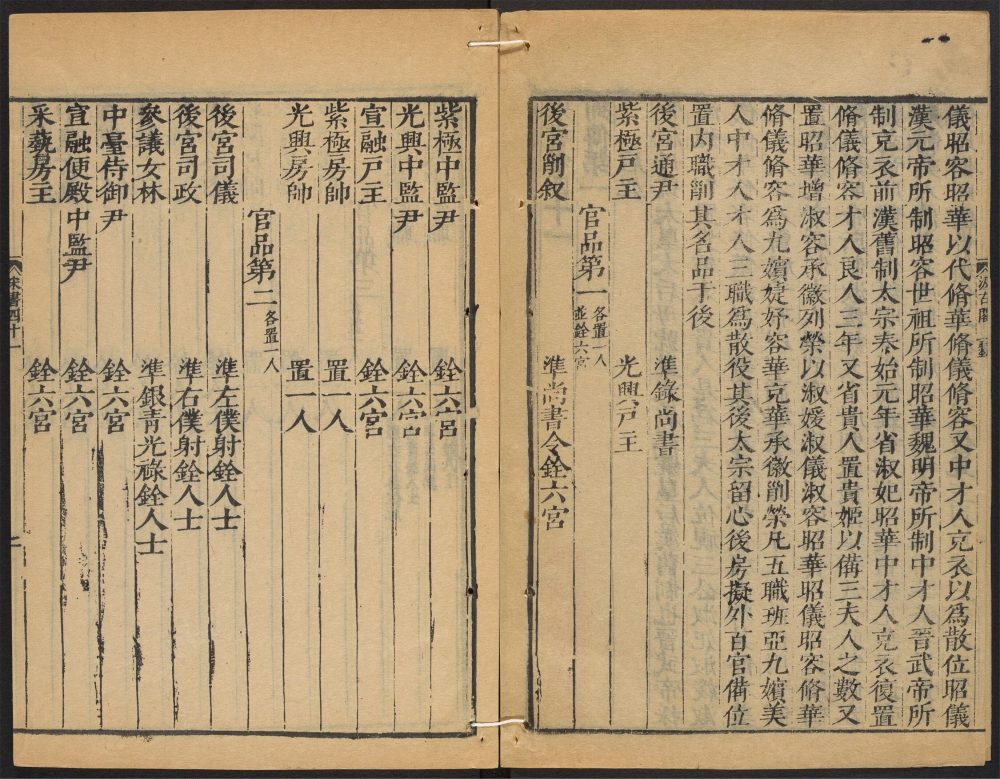 儀昭容昭華以代脩華脩儀脩容又中才人克衣以爲散位昭儀
漢元帝所制昭容世祖所制昭華魏明帝所制中才人晉武帝所
制克衣前漢舊制太宗泰始元年省淑妃昭華中才人克衣復置
脩儀脩容才人良人三年又省貴人置貴姬以備三夫人之數又
置昭華增淑容承徽列榮以淑媛淑儀淑容昭華昭儀昭容脩華
脩儀脩容爲九嬪婕妤容華克華承徽列榮凡五職班亞九嬪美
人中才人才人三職爲散役其後太宗留心後房擬外百官備位
置内職列其名品于後
後宮通尹 準錄尚書
紫極戸主 光興戸主
官品第一 各置一人 並銓六宮
後宮列叙 準尚書令銓六宮
紫極中監尹 銓六宮
光興中監尹 銓六宮
宣融戸主 銓六宮
紫極房帥 置一人
光興房帥 置一人
官品第二 各置一人
後宮司儀 準左僕射銓人士
後宮司政 準右僕射銓人士
參議女林 準銀青光祿銓人士
中臺侍御尹 銓六宮
宣融便殿中監尹 銓六宮
采藝房主 銓六宮
宋書四十一
二
汲古閣